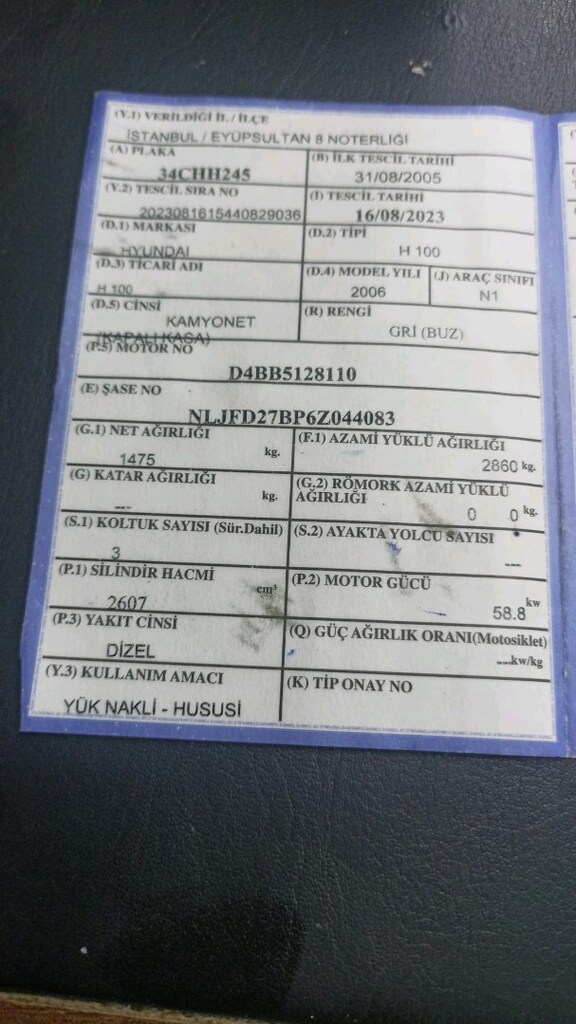 (Y.1) VERİLDİĞİ İL / İLÇE
İSTANBUL / EYÜPSULTAN 8 NOTERLİĞİ
(A) PLAKA
34CHH245
(B) İLK TESCİL TARİHİ
31/08/2005
(Y.2) TESCİL SIRA NO
2023081615440829036
(I) TESCİL TARİHİ
16/08/2023
(D.1) MARKASI
HYUNDAI
(D.2) TİPİ
H 100
(D.3) TİCARİ ADI
H 100
(D.4) MODEL YILI
2006
(J) ARAÇ SINIFI
N1
(D.5) CİNSİ
KAMYONET
(KAPALI KASA)
(R) RENGİ
GRİ (BUZ)
(P.5) MOTOR NO
D4BB5128110
(E) ŞASE NO
NLJFD27BP6Z044083
(G.1) NET AĞIRLIĞI
1475 kg.
(F.1) AZAMİ YÜKLÜ AĞIRLIĞI
2860 kg.
(G) KATAR AĞIRLIĞI
--- kg.
(G.2) RÖMORK AZAMİ YÜKLÜ
AĞIRLIĞI
0 0 kg.
(S.1) KOLTUK SAYISI (Sür.Dahil)
3
(S.2) AYAKTA YOLCU SAYISI
---
(P.1) SİLİNDİR HACMİ
2607 cm³
(P.2) MOTOR GÜCÜ
58.8 kw
(P.3) YAKIT CİNSİ
DİZEL
(Q) GÜÇ AĞIRLIK ORANI(Motosiklet)
---kw/kg
(Y.3) KULLANIM AMACI
YÜK NAKLİ - HUSUSİ
(K) TİP ONAY NO